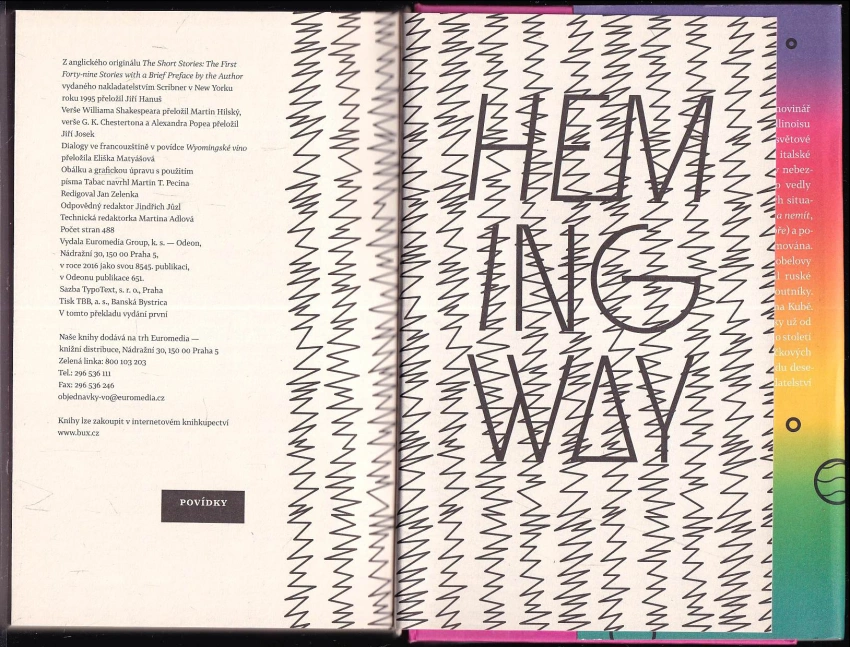 Z anglického originálu The Short Stories: The First
Forty-nine Stories with a Brief Preface by the Author
vydaného nakladatelstvím Scribner v New Yorku
roku 1995 přeložil Jiří Hanuš
Verše Williama Shakespeara přeložil Martin Hilský,
verše G. K. Chestertona a Alexandra Popea přeložil
Jiří Josek
Dialogy ve francouzštině v povídce Wyomingské víno
přeložila Eliška Matyášová
Obálku a grafickou úpravu s použitím
písma Tabac navrhl Martin T. Pecina
Redigoval Jan Zelenka
Odpovědný redaktor Jindřich Jůzl
Technická redaktorka Martina Adlová
Počet stran 488
Vydala Euromedia Group, k. s. — Odeon,
Nádražní 30, 150 00 Praha 5,
v roce 2016 jako svou 8545. publikaci,
v Odeonu publikace 651.
Sazba TypoText, s. r. o., Praha
Tisk TBB, a. s., Banská Bystrica
V tomto překladu vydání první
Naše knihy dodává na trh Euromedia —
knižní distribuce, Nádražní 30, 150 00 Praha 5
Zelená linka: 800 103 203
Tel.: 296 536 111
Fax: 296 536 246
objednavky-vo@euromedia.cz
Knihy lze zakoupit v internetovém knihkupectví
www.bux.cz
POVÍDKY
HEM
ING
WAY
italské
vedly
a nemít,
ruské
na Kubě.
už od
století